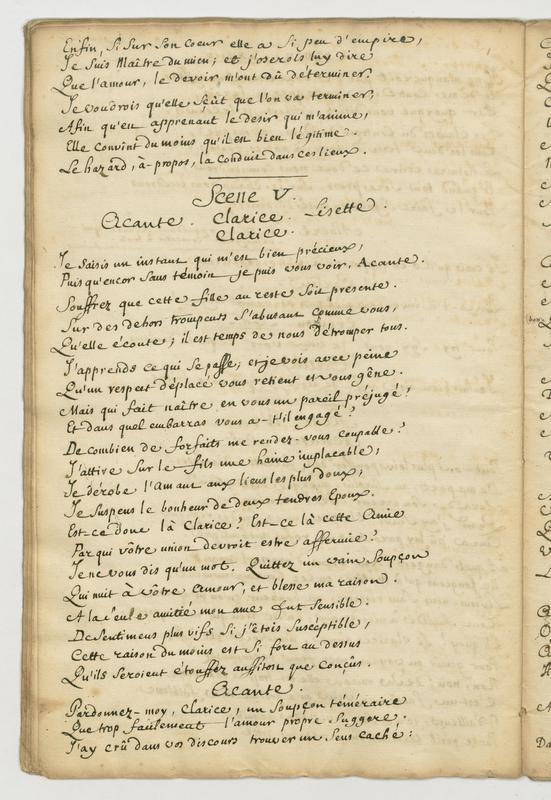 Enfin, si sur son coeur elle a si peu d'empire,
Je suis Maître du mien; et j'oserois luy dire
Que l'amour, le devoir m'ont dû déterminer.
Je voudrois qu'elle sçût que l'on va terminer,
Afin qu'en apprenant le desir qui m'anime,
Elle convint du moins qu'il en bien légitime.
Le hazard, à-propos, la conduit dans ces lieux.
Scene V.
Acante. Clarice. Lisette.
Clarice.
Je saisis un instant qui m'est bien précieux,
Puis qu'encor sans témoin je puis vous voir, Acante.
Souffrez que cette fille au reste soit presente.
Sur des dehors trompeurs s'abusant comme vous,
Qu'elle écoute; il est temps de nous détromper tous.
J'apprends ce qui se passe; et je vois avec peine
Qu'un respect déplacé vous retient et vous gêne.
Mais qui fait naître en vous un pareil préjugé?
Et dans quel embarras vous a-t'il engagé?
De combien de forfaits me rendez-vous coupable?
J'attire sur le fils une haine implacable;
Je dérobe l'Amant aux liens les plus doux;
Je suspens le bonheur de deux tendres Epoux.
Est-ce donc là Clarice? Est-ce là cette Amie
Par qui vôtre union devroit estre affermie?
Je ne vous dis qu'un mot. Quittez un vain soupçon
Qui nuit à vôtre amour, et blesse ma raison.
A la seule amitié mon ame fut sensible.
De sentimens plus vifs si j'étois suscéptible,
Cette raison du moins est si fort au dessus
Qu'ils seroient étouffez aussitost que conçus.
Acante.
Pardonnez-moy, Clarice, un soupçon téméraire
Que trop facilement l'amour propre suggere.
J'ay crû dans vos discours trouver un sens caché: